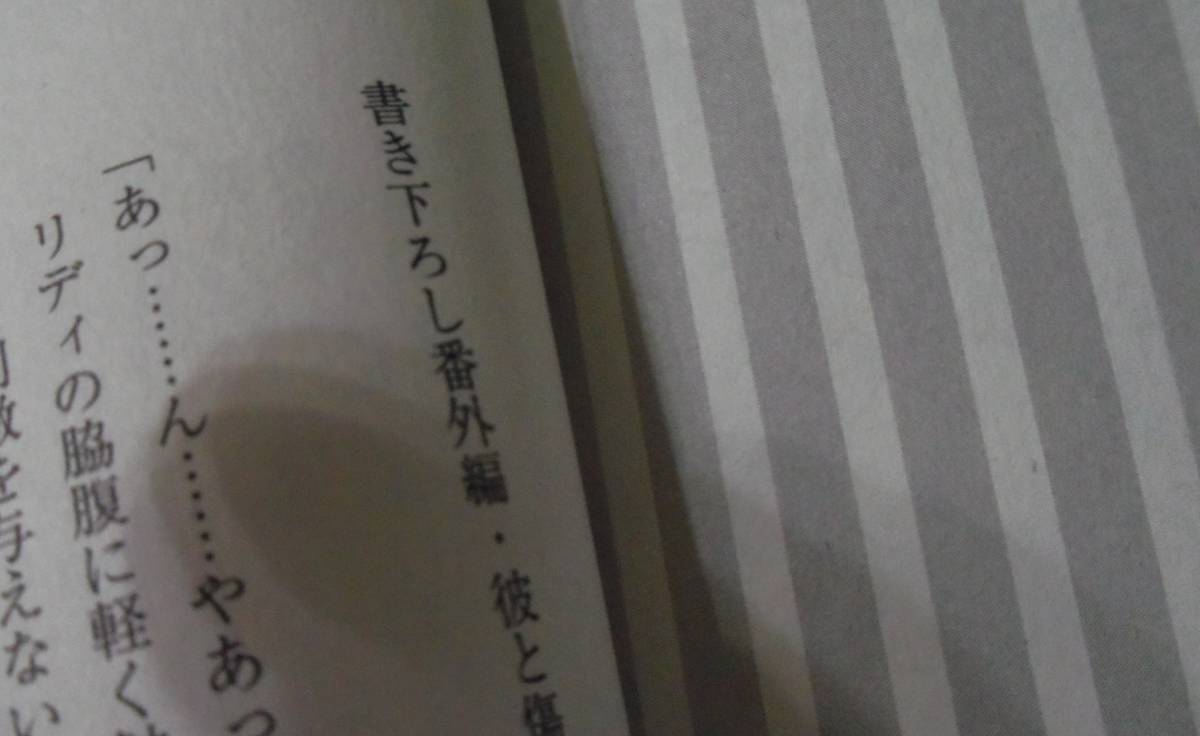 書き下ろし番外編・彼と傷
「あっ……ん……やあっ
リディの脇腹に軽く
激を与えない